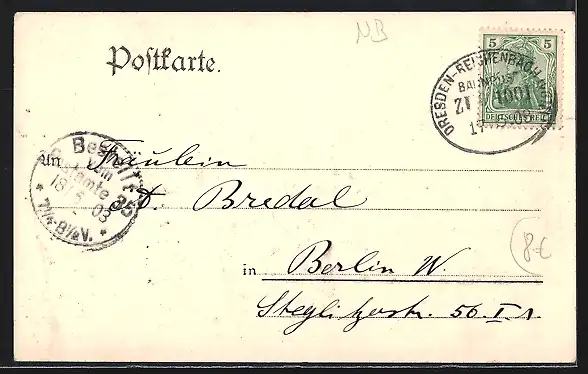 NB
Postkarte.
5 5
DEUTSCHES REICH
DRESDEN-REICHENBACH
BAHNPOST
ZUG 1001
17
An Fräulein
A. Bredal
in Berlin W.
Steglitzerstr. 56. I r.
Bestellt
vom
Postamte 35
18 5 03
7¼-8½V.
8-€